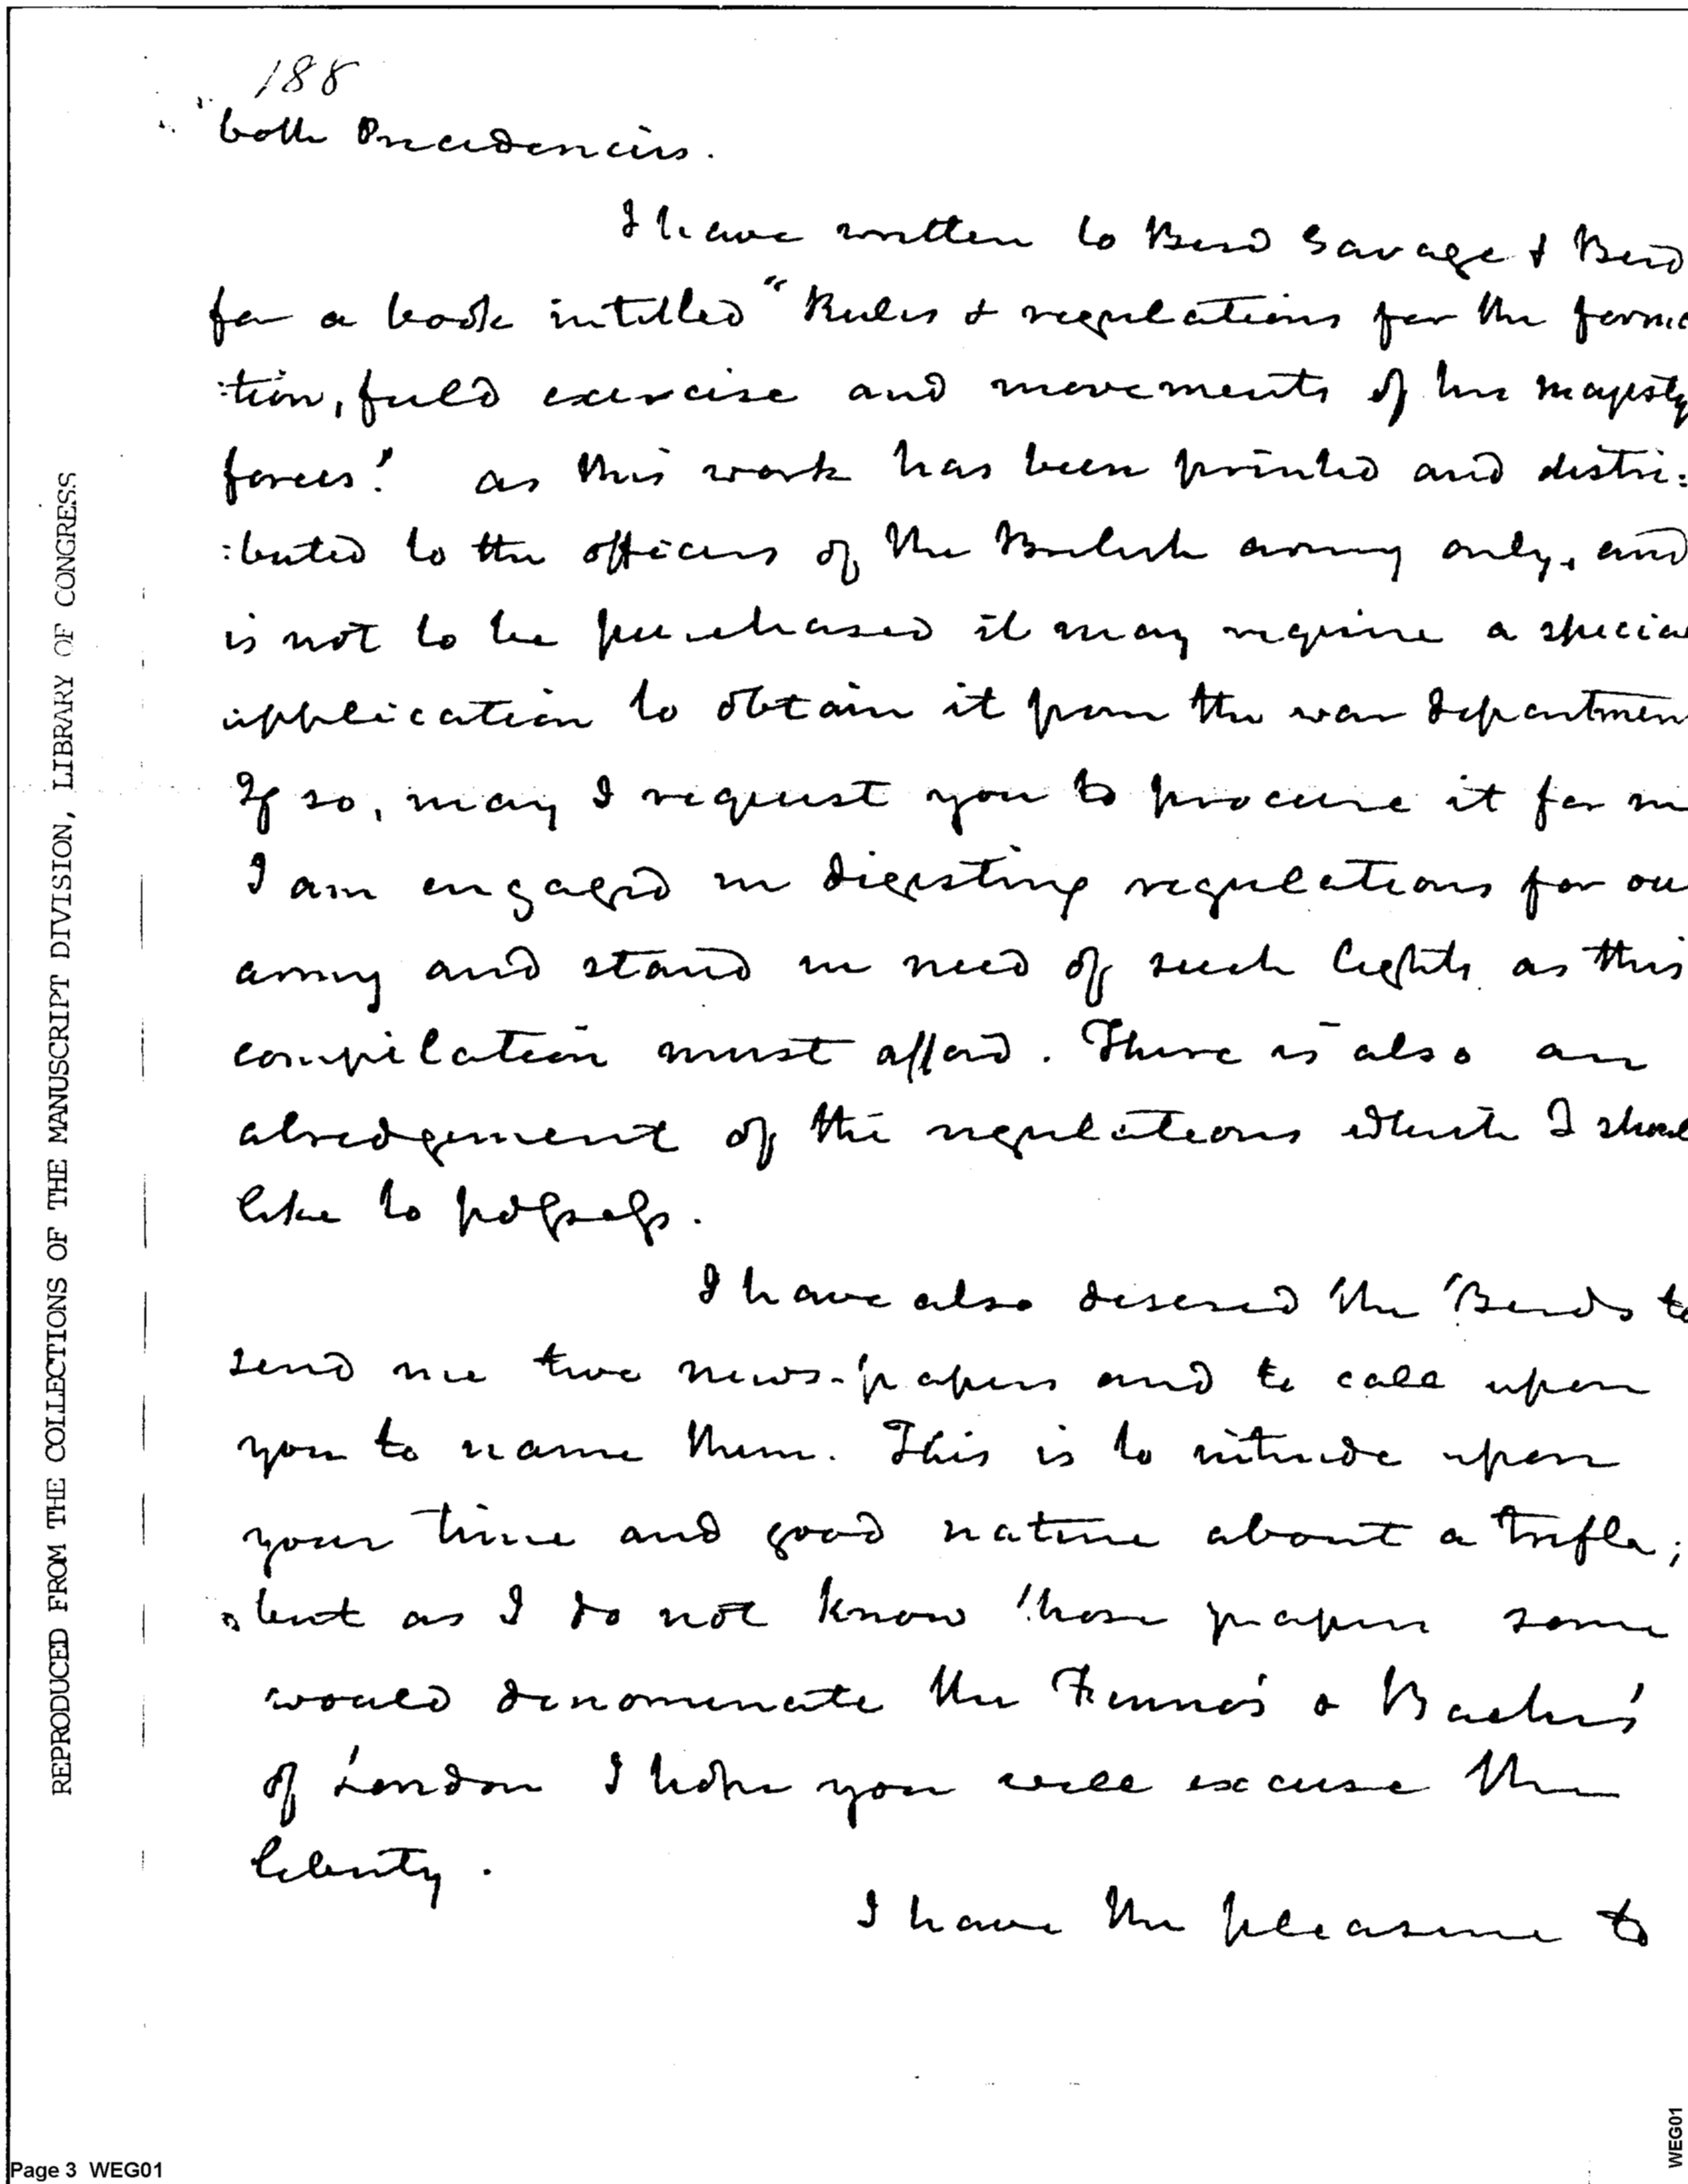 188
both Precedencies.
I have written to Bird Savage & Bird
for a book intitled "Rules & regulations for the forma
:tion, field exercise and movements of his majesty
forces." as this work has been printed and distri:
:buted to the officers of the British army only, and
is not to be purchased it may require a special
application to obtain it from the war departmen
If so, may I request you to procure it for m
I am engaged in digesting regulations for ou
army and stand in need of such lights as this
compilation must afford. There is also an
abredgement of the regulations which I shoul
like to possess.
I have also desired the Birds to
send me two news-papers and to call upon
you to name them. This is to intrude upon
your time and good nature about a trifle;
but as I do not know those papers some
would denominate the Fenno's & Bache's
of London I hope you will excuse the
liberty.
I have the pleasure to
REPRODUCED FROM THE COLLECTIONS OF THE MANUSCRIPT DIVISION, LIBRARY OF CONGRESS
Page 3 WEG01
WEG01